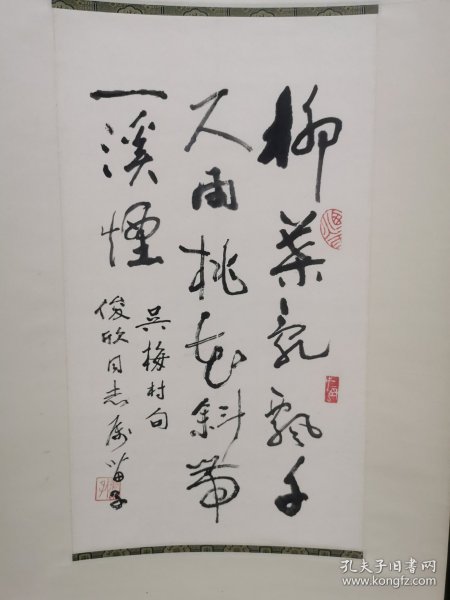 柳葉亂飄千
尺雨桃花斜带
一溪煙
吴梅村句
俊欣同志属苗子
孔夫子旧书网
www.kongfz.com